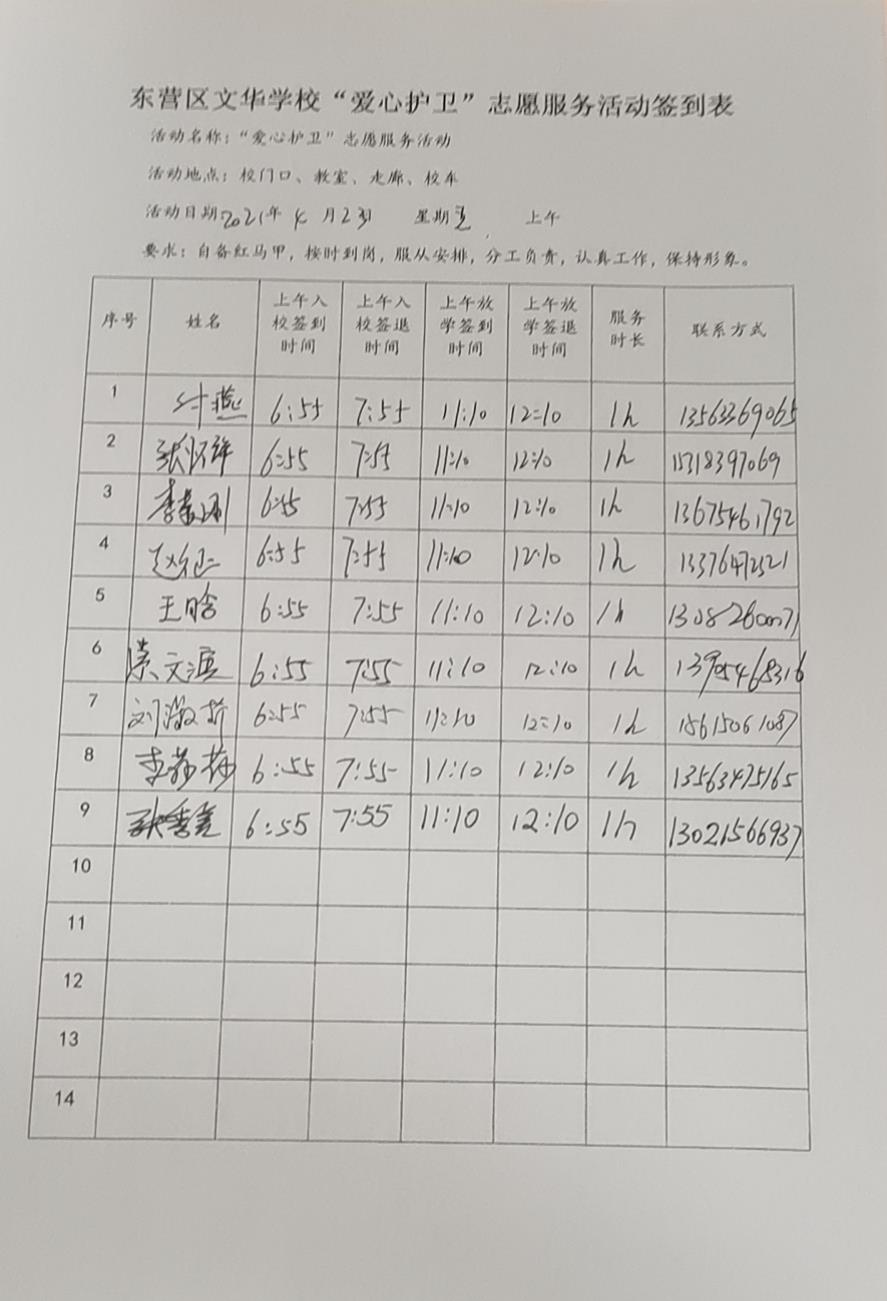 东营区文华学校“爱心护卫”志愿服务活动签到表
活动名称：“爱心护卫”志愿服务活动
活动地点：校门口、教室、走廊、校车
活动日期2021年 4 月23日 星期五 上午
要求：自备红马甲，按时到岗，服从安排，分工负责，认真工作，保持形象。
序号 姓名 上午入校签到时间 上午入校签退时间 上午放学签到时间 上午放学签退时间 服务时长 联系方式
1 燕 6:55 7:55 11:10 12:10 1h 13563369065
2 张怀祥 6:55 7:55 11:10 12:10 1h 15318397069
3 李 6:55 7:55 11:10 12:10 1h 13675461792
4 赵 6:55 7:55 11:10 12:10 1h
5 王晗 6:55 7:55 11:10 12:10 1h
6 崇文滨 6:55 7:55 11:10 12:10 1h 13905468316
7 刘 6:55 7:55 11:10 12:10 1h 15615061087
8 李 6:55 7:55 11:10 12:10 1h 13563475165
9 张秀美 6:55 7:55 11:10 12:10 1h 13021566937
10
11
12
13
14